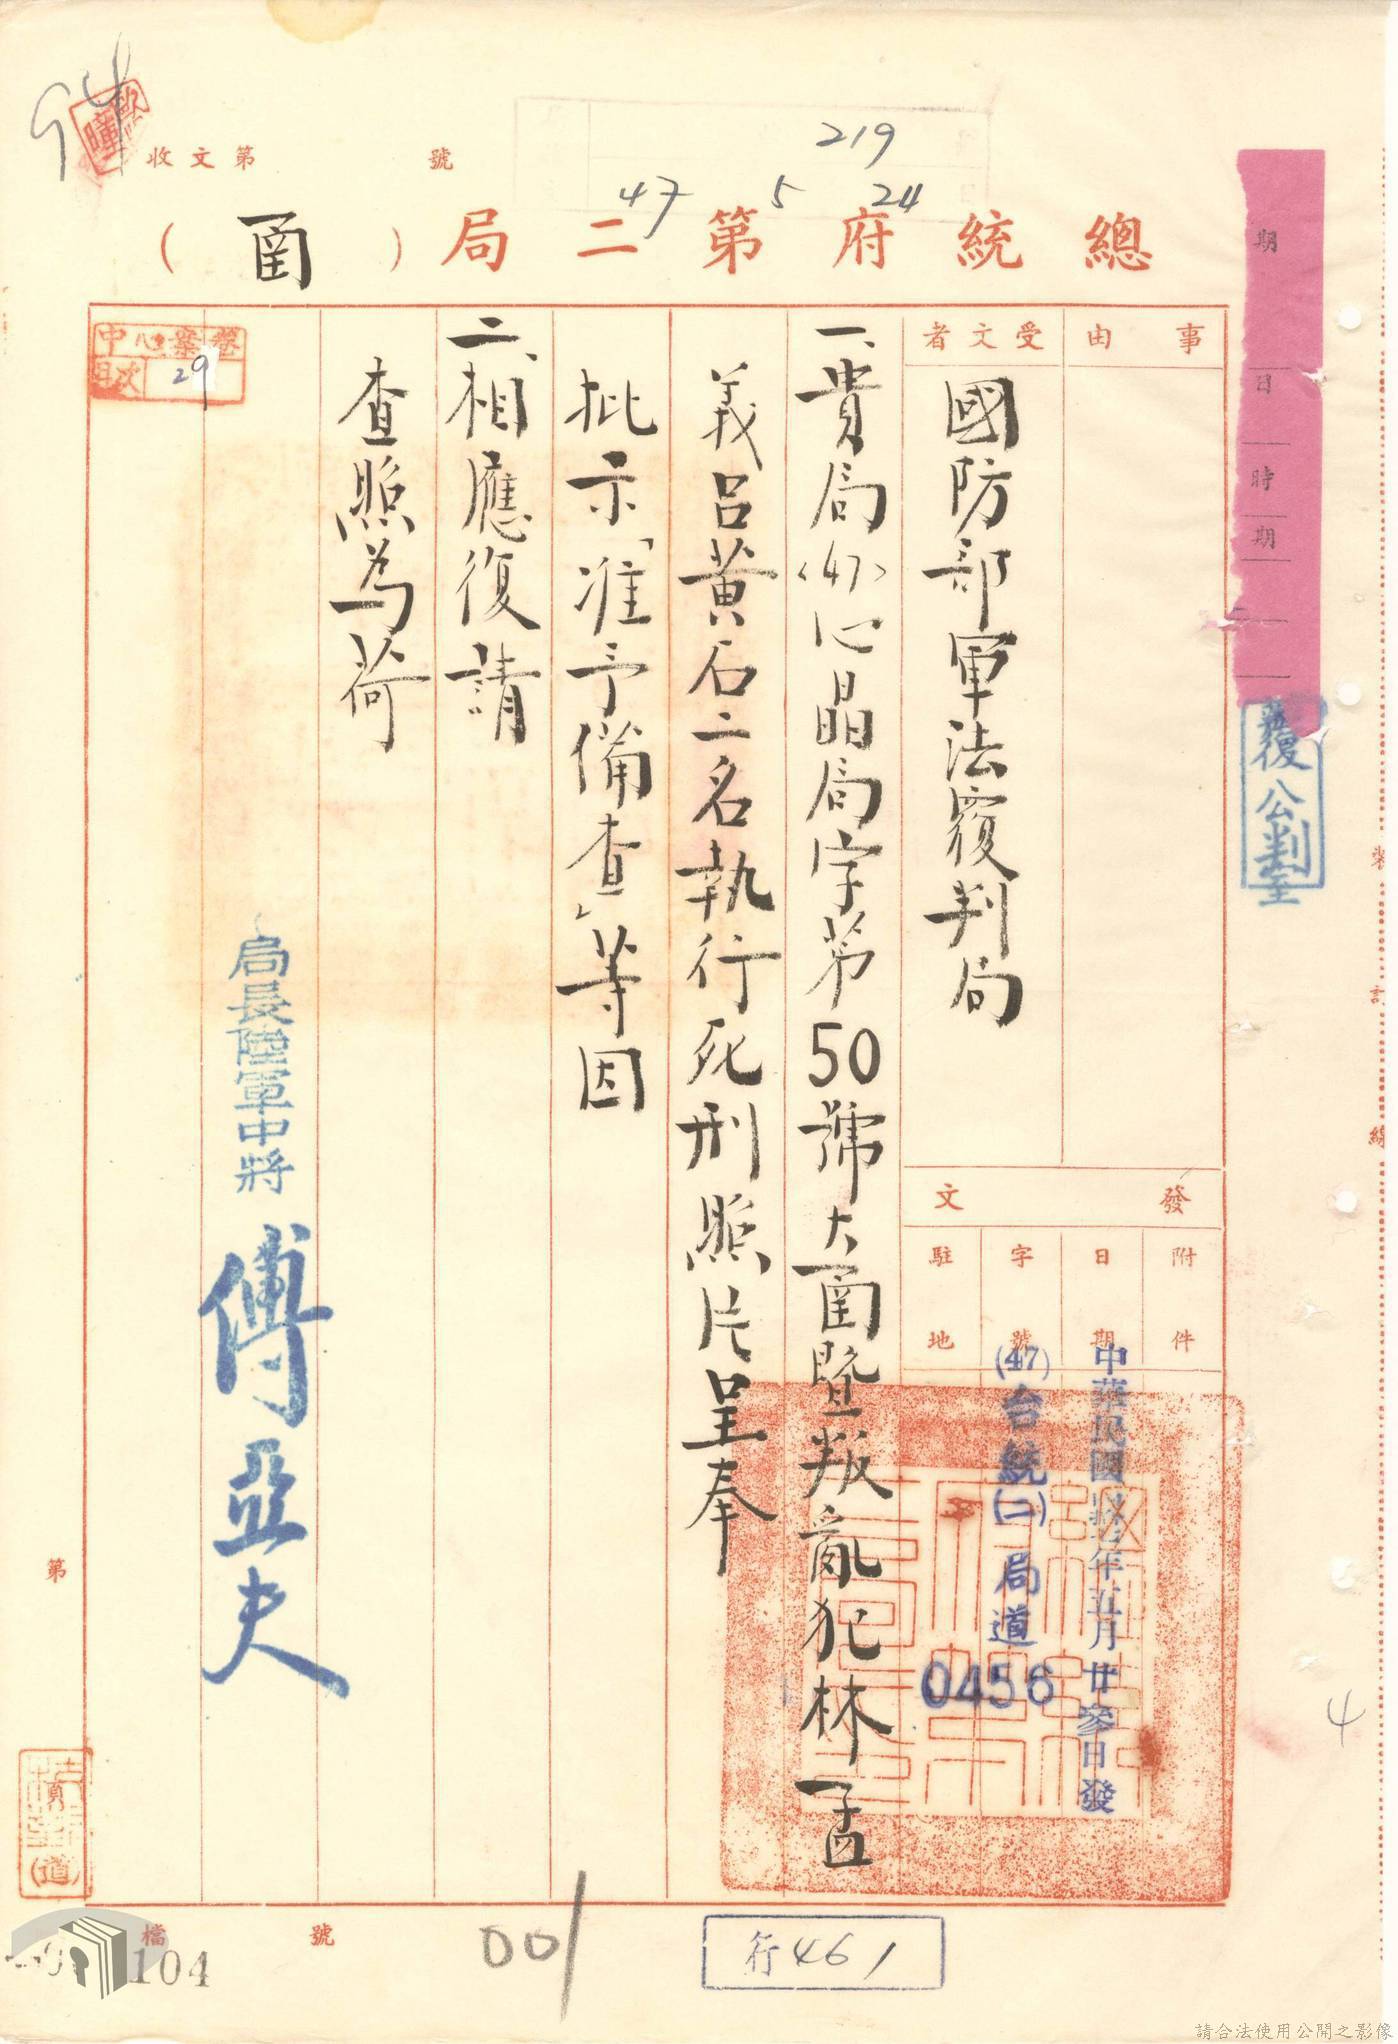 94
收文第　號
219
47 5 24
總統府第二局（函）
事由
受文者
國防部軍法覆判局
發文
附件
日期
中華民國肆柒年五月廿參日發
字號
(47)台統(二)局道
0456
駐地
一、貴局〈47〉心晶局字第50號大函暨叛亂犯林孟
義呂黃石二名執行死刑照片呈奉
批示「准予備查」等因
二、相應復請
查照為荷
局長陸軍中將 傅亞夫
中心案卷
目次
29
期
日
時
期
覆公判
訂
線
第
頁
(道)
4
檔　號
104
001
行461
請合法使用公開之影像